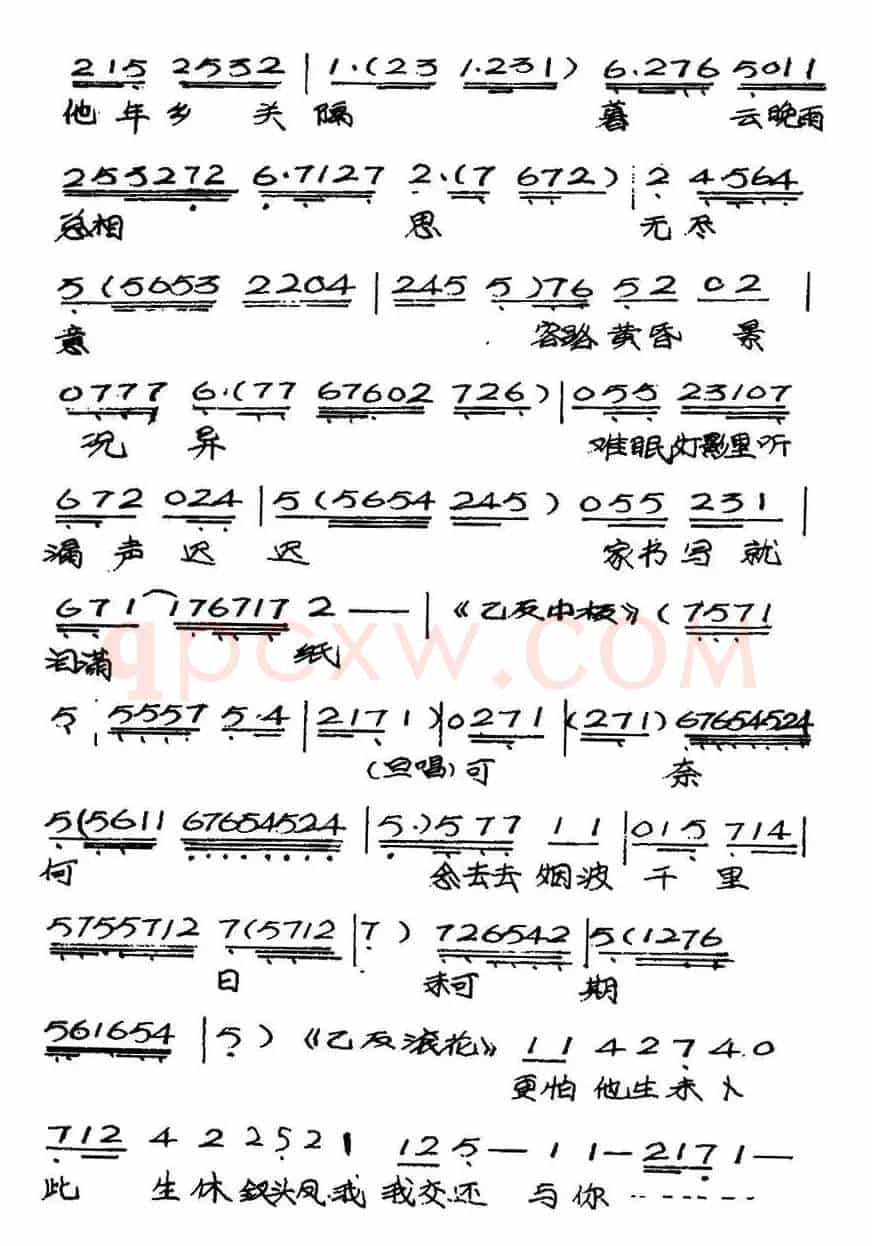 215 2532 | 1.(23 1.231) 6.276 5011
他年乡关隔 暮云晚雨
253272 6.7127 2.(7 672) 2 4564
总相思 无尽
5(5653 2204 | 245 5)76 52 02 |
意 客路黄昏景
0777 6.(77 67602 726) | 055 23107
况异 难眠灯影里听
672 024 | 5(5654 245) 055 231 |
漏声迟迟 家书写就
671 176717 2 —— | 《乙反中板》(7571
泪满纸
qpcxw.COM
5 5557 5.4 | 2171) | 0271 | (271) 67654524
(旦唱)可奈
5(5611 67654524 | 5.)577 11 | 015 714 |
何 念去去烟波千里
5755712 7(5712 | 7) 726542 | 5(1276
日未可期
561654 | 5) 《乙反滚花》 11 4 2 7 4.0
更怕他生未卜
712 4 2 2 5 2 1 12 5— 1 1— 2171—
此生休钗头凤我我交还与你------